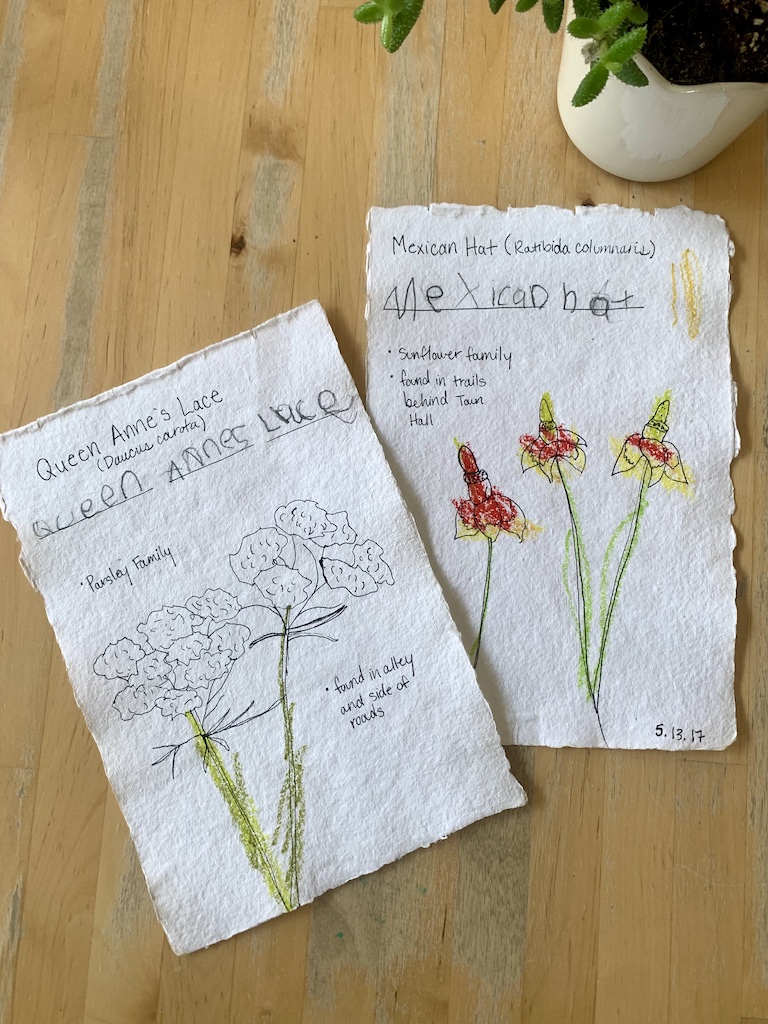 Queen Anne's Lace
(Daucus carota)
Queen Annes Lace
• Parsley Family
• found in alley
and side of
roads
Mexican Hat (Ratibida columnaris)
Mexican hat
• Sunflower family
• found in trails
behind Town
Hall
5.13.17